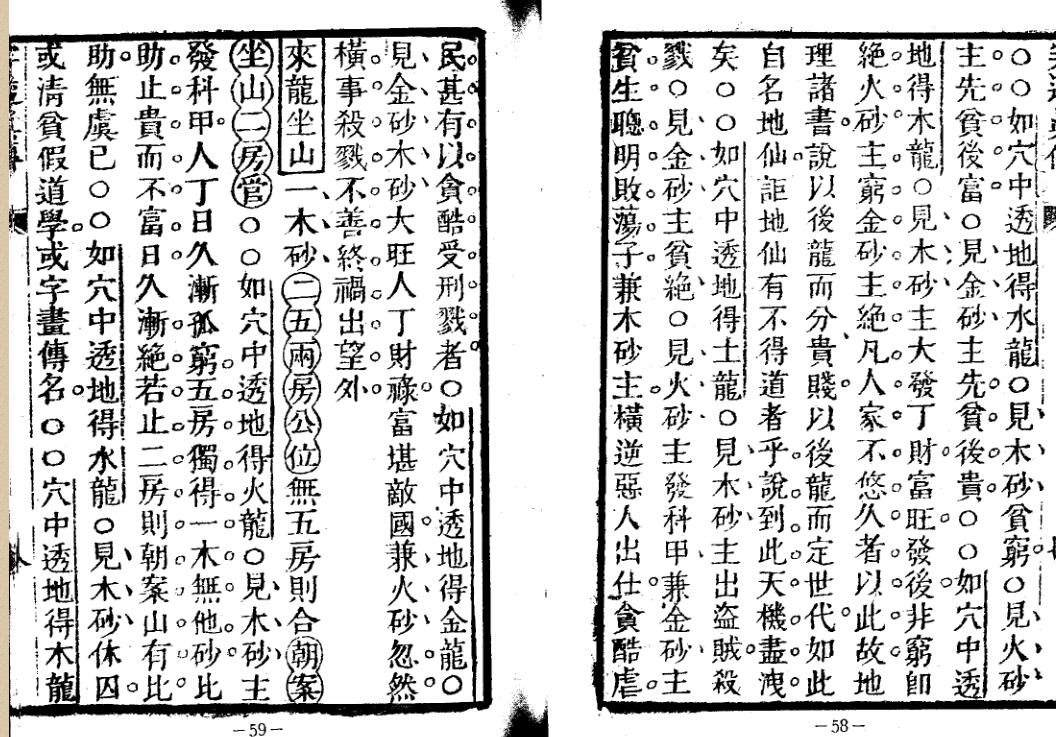 ○○如穴中透地得水龍○見木砂貧窮○見火砂
主先貧後富○見金砂主先貧後貴○○如穴中透
地得木龍○見木砂主大發丁財富旺發後非窮卽
絶火砂主窮金砂主絶凡人家不悠久者以此故地
理諸書說以後龍而分貴賤以後龍而定世代如此
自名地仙詎地仙有不得道者乎說到此天機盡洩
矣○○如穴中透地得土龍○見木砂主出盜賊殺
戮○見金砂主貧絶○見火砂主發科甲兼金砂主
貧生聰明敗蕩子兼木砂主橫逆惡人出仕貪酷虐
－58－
民甚有以貪酷受刑戮者○如穴中透地得金龍○
見金砂木砂大旺人丁財祿富堪敵國兼火砂忽然
橫事殺戮不善終禍出望外
來龍坐山一木砂二五兩房公位無五房則合朝案
坐山二房管○○如穴中透地得火龍○見木砂主
發科甲人丁日久漸孤窮五房獨得一木無他砂比
助止貴而不富日久漸絶若止二房則朝案山有比
助無虞已○○如穴中透地得水龍○見木砂休囚
或淸貧假道學或字畫傳名○○穴中透地得木龍
－59－